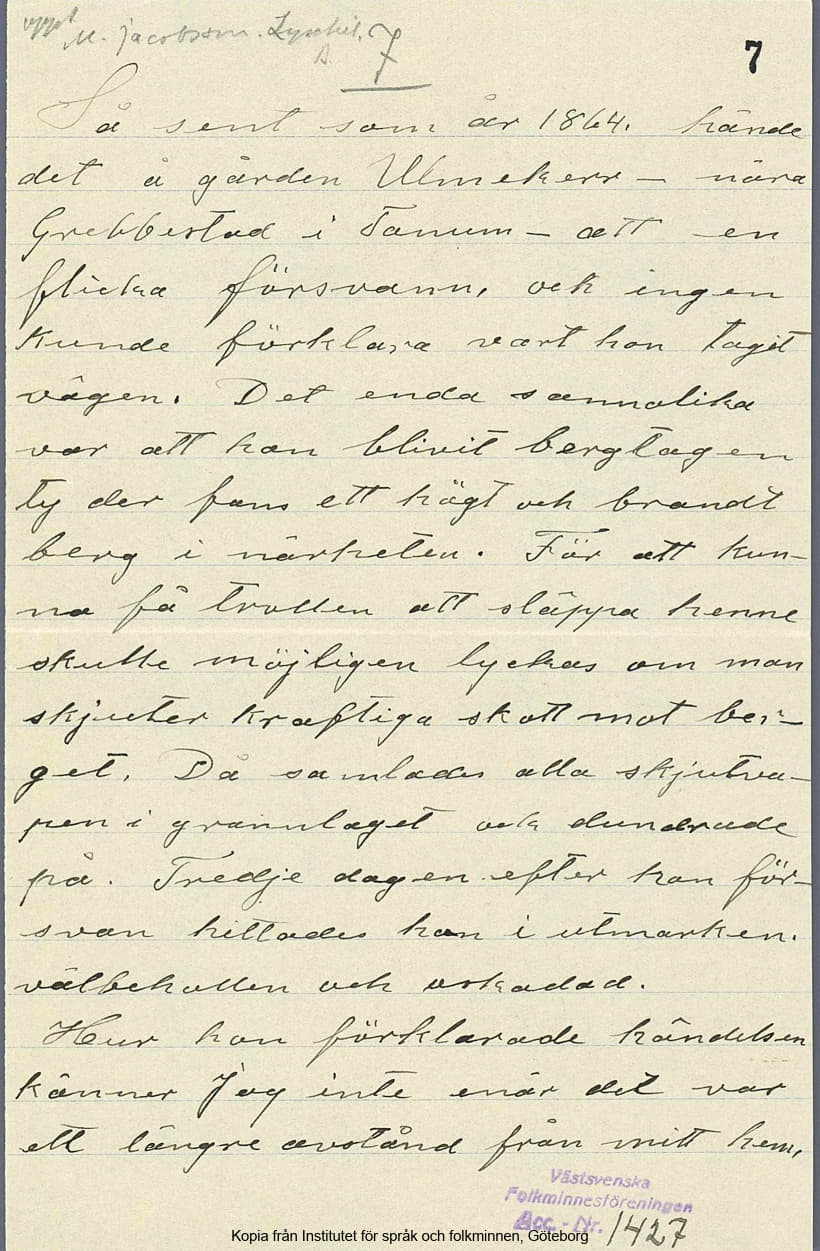 uppt M. Jacobsson. Lysekil,
7
7
Så sent som år 1864. hände
det å gården Ulmekerr – nära
Grebbestad i Tanum – att en
flicka försvann, ock ingen
kunde förklara vart hon tagit
vägen. Det enda sannolika
var att hon blivit bergtagen
ty der fans ett högt och brandt
berg i närheten. För att kun-
na få trollen att släppa henne
skulle möjligen lyckas om man
skjuter kraftiga skott mot ber-
get. Då samlades alla skjutva-
pen i grannlaget och dundrade
på. Tredje dagen efter hon för-
svan hittades hon i utmarken.
välbehollen och oskadad.
Hur hon förklarade händelsen
känner Jag inte enär det var
ett längre avstånd från mitt hem,
Västsvenska
Folkminnesföreningen
Acc.-Nr. 1427
Kopia från Institutet för språk och folkminnen, Göteborg